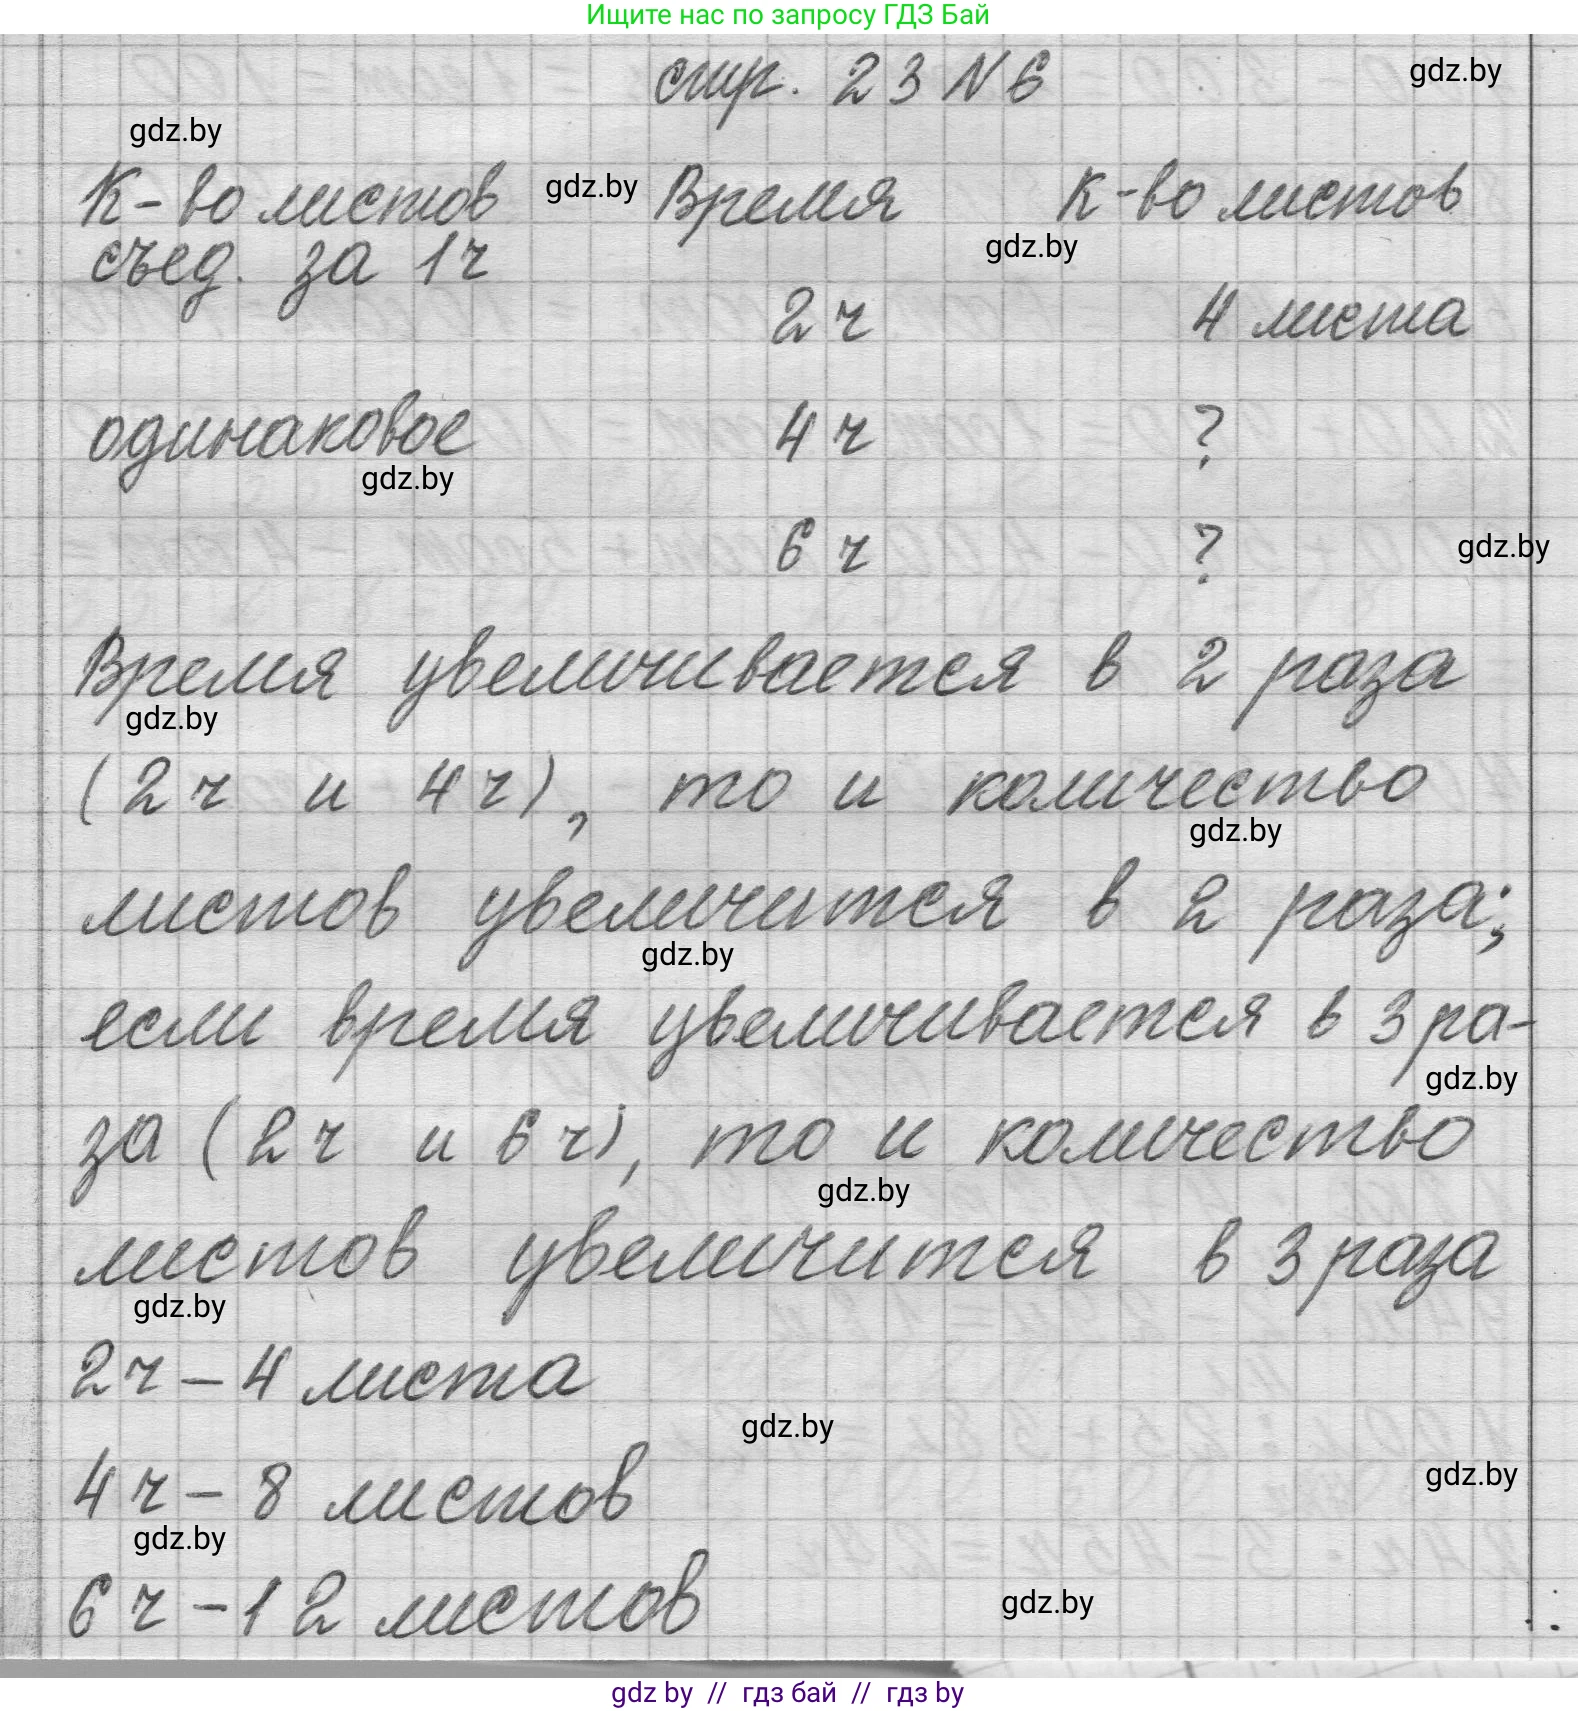 Ищите нас по запросу ГДЗ Бай
стр. 23 N 6
gdz.by
gdz.by
К-во листов gdz.by Время к-во листов
съед. за 1ч gdz.by
2 ч 4 листа
одинаковое 4 ч ?
gdz.by
6 ч ? gdz.by
Время увеличивается в 2 раза
gdz.by
(2ч и 4ч), то и количество
gdz.by
листов увеличится в 2 раза;
gdz.by
если время увеличивается в 3 ра-
gdz.by
за (2ч и 6ч), то и количество
gdz.by
листов увеличится в 3 раза
gdz.by
2ч – 4 листа
gdz.by
4 ч – 8 листов gdz.by
gdz.by
6 ч – 12 листов gdz.by
gdz by // гдз бай // гдз by